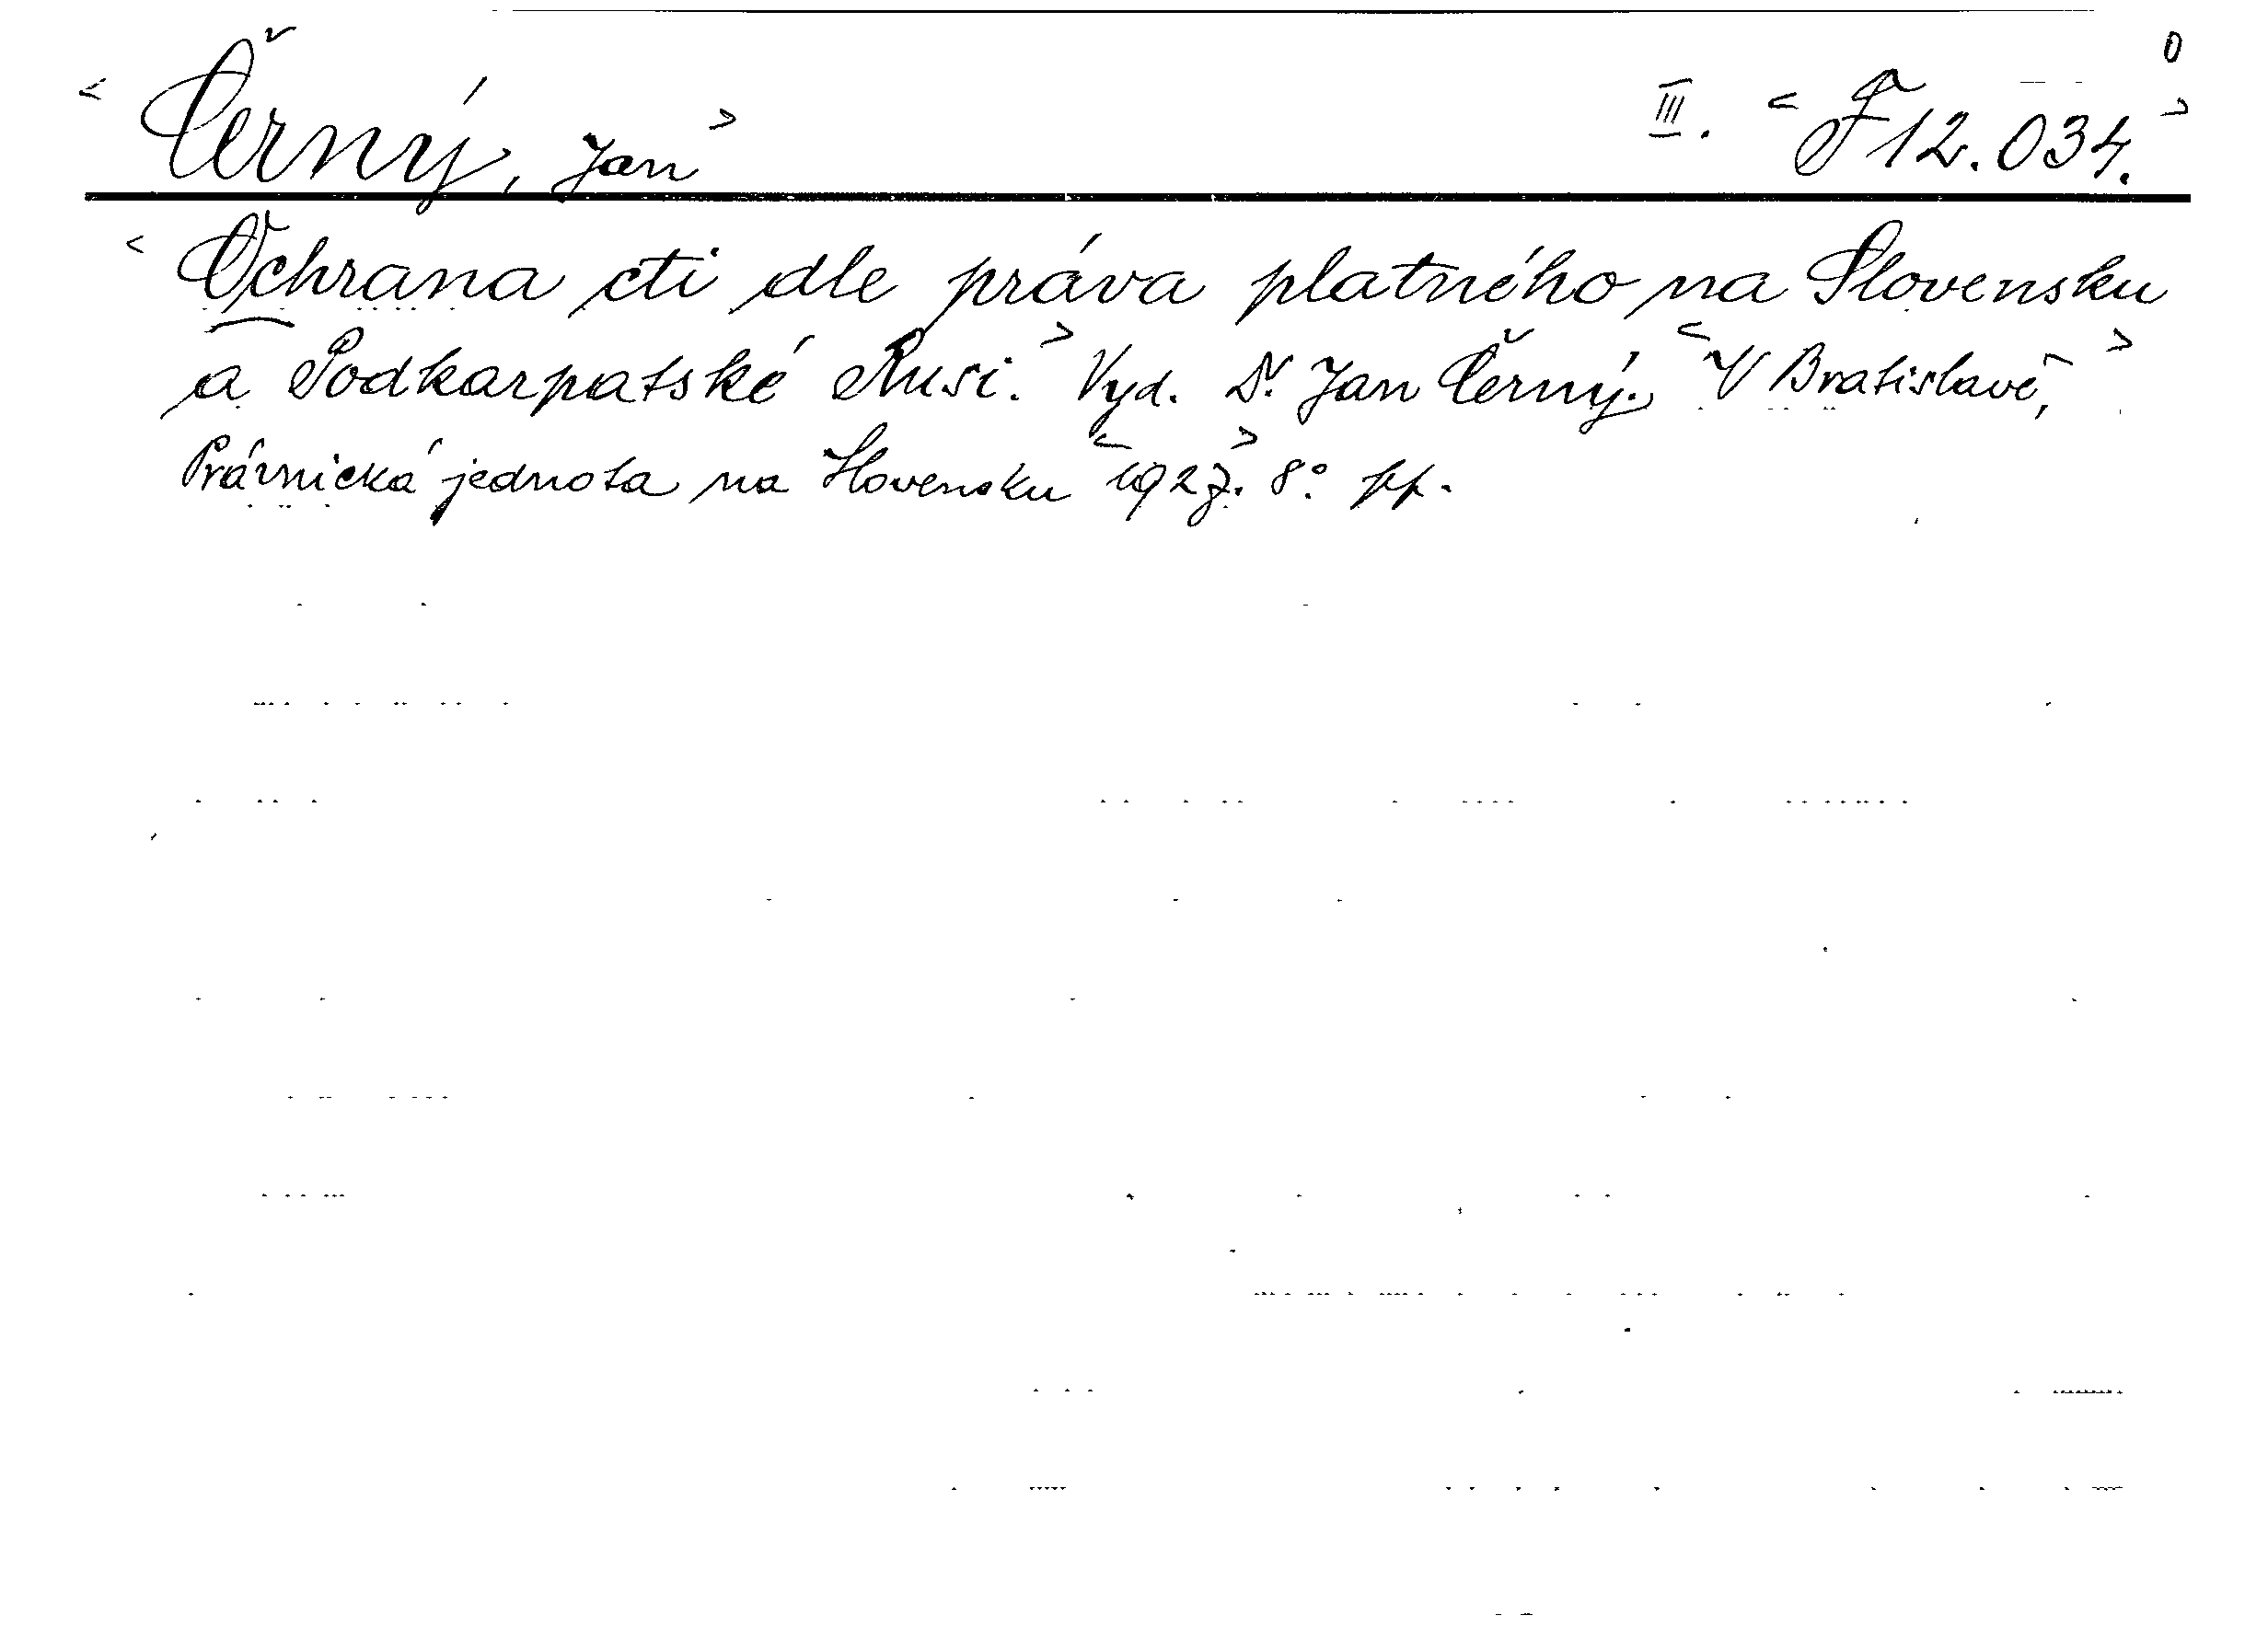 < Černý, Jan > III. < F 12.034. > 0
< Ochrana cti dle práva platného na Slovensku
a Podkarpatské Rusi. > Vyd. Dr. Jan Černý. < V Bratislavě, >
Právnická jednota na Slovensku < 1927. > 8°. pp.